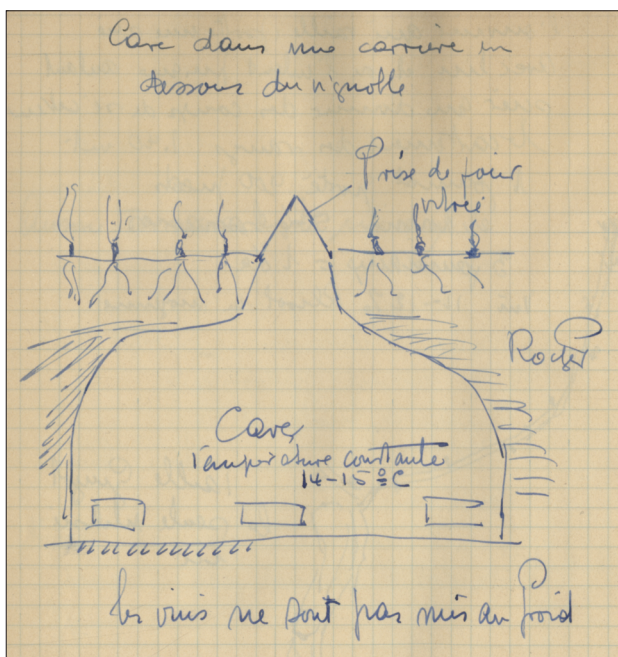 Cave dans une carrière en
dessous du vignoble
Prise de jour
vitrée
Rocher
Caves
Température constante
14-15°C
les vins ne sont pas mis au froid